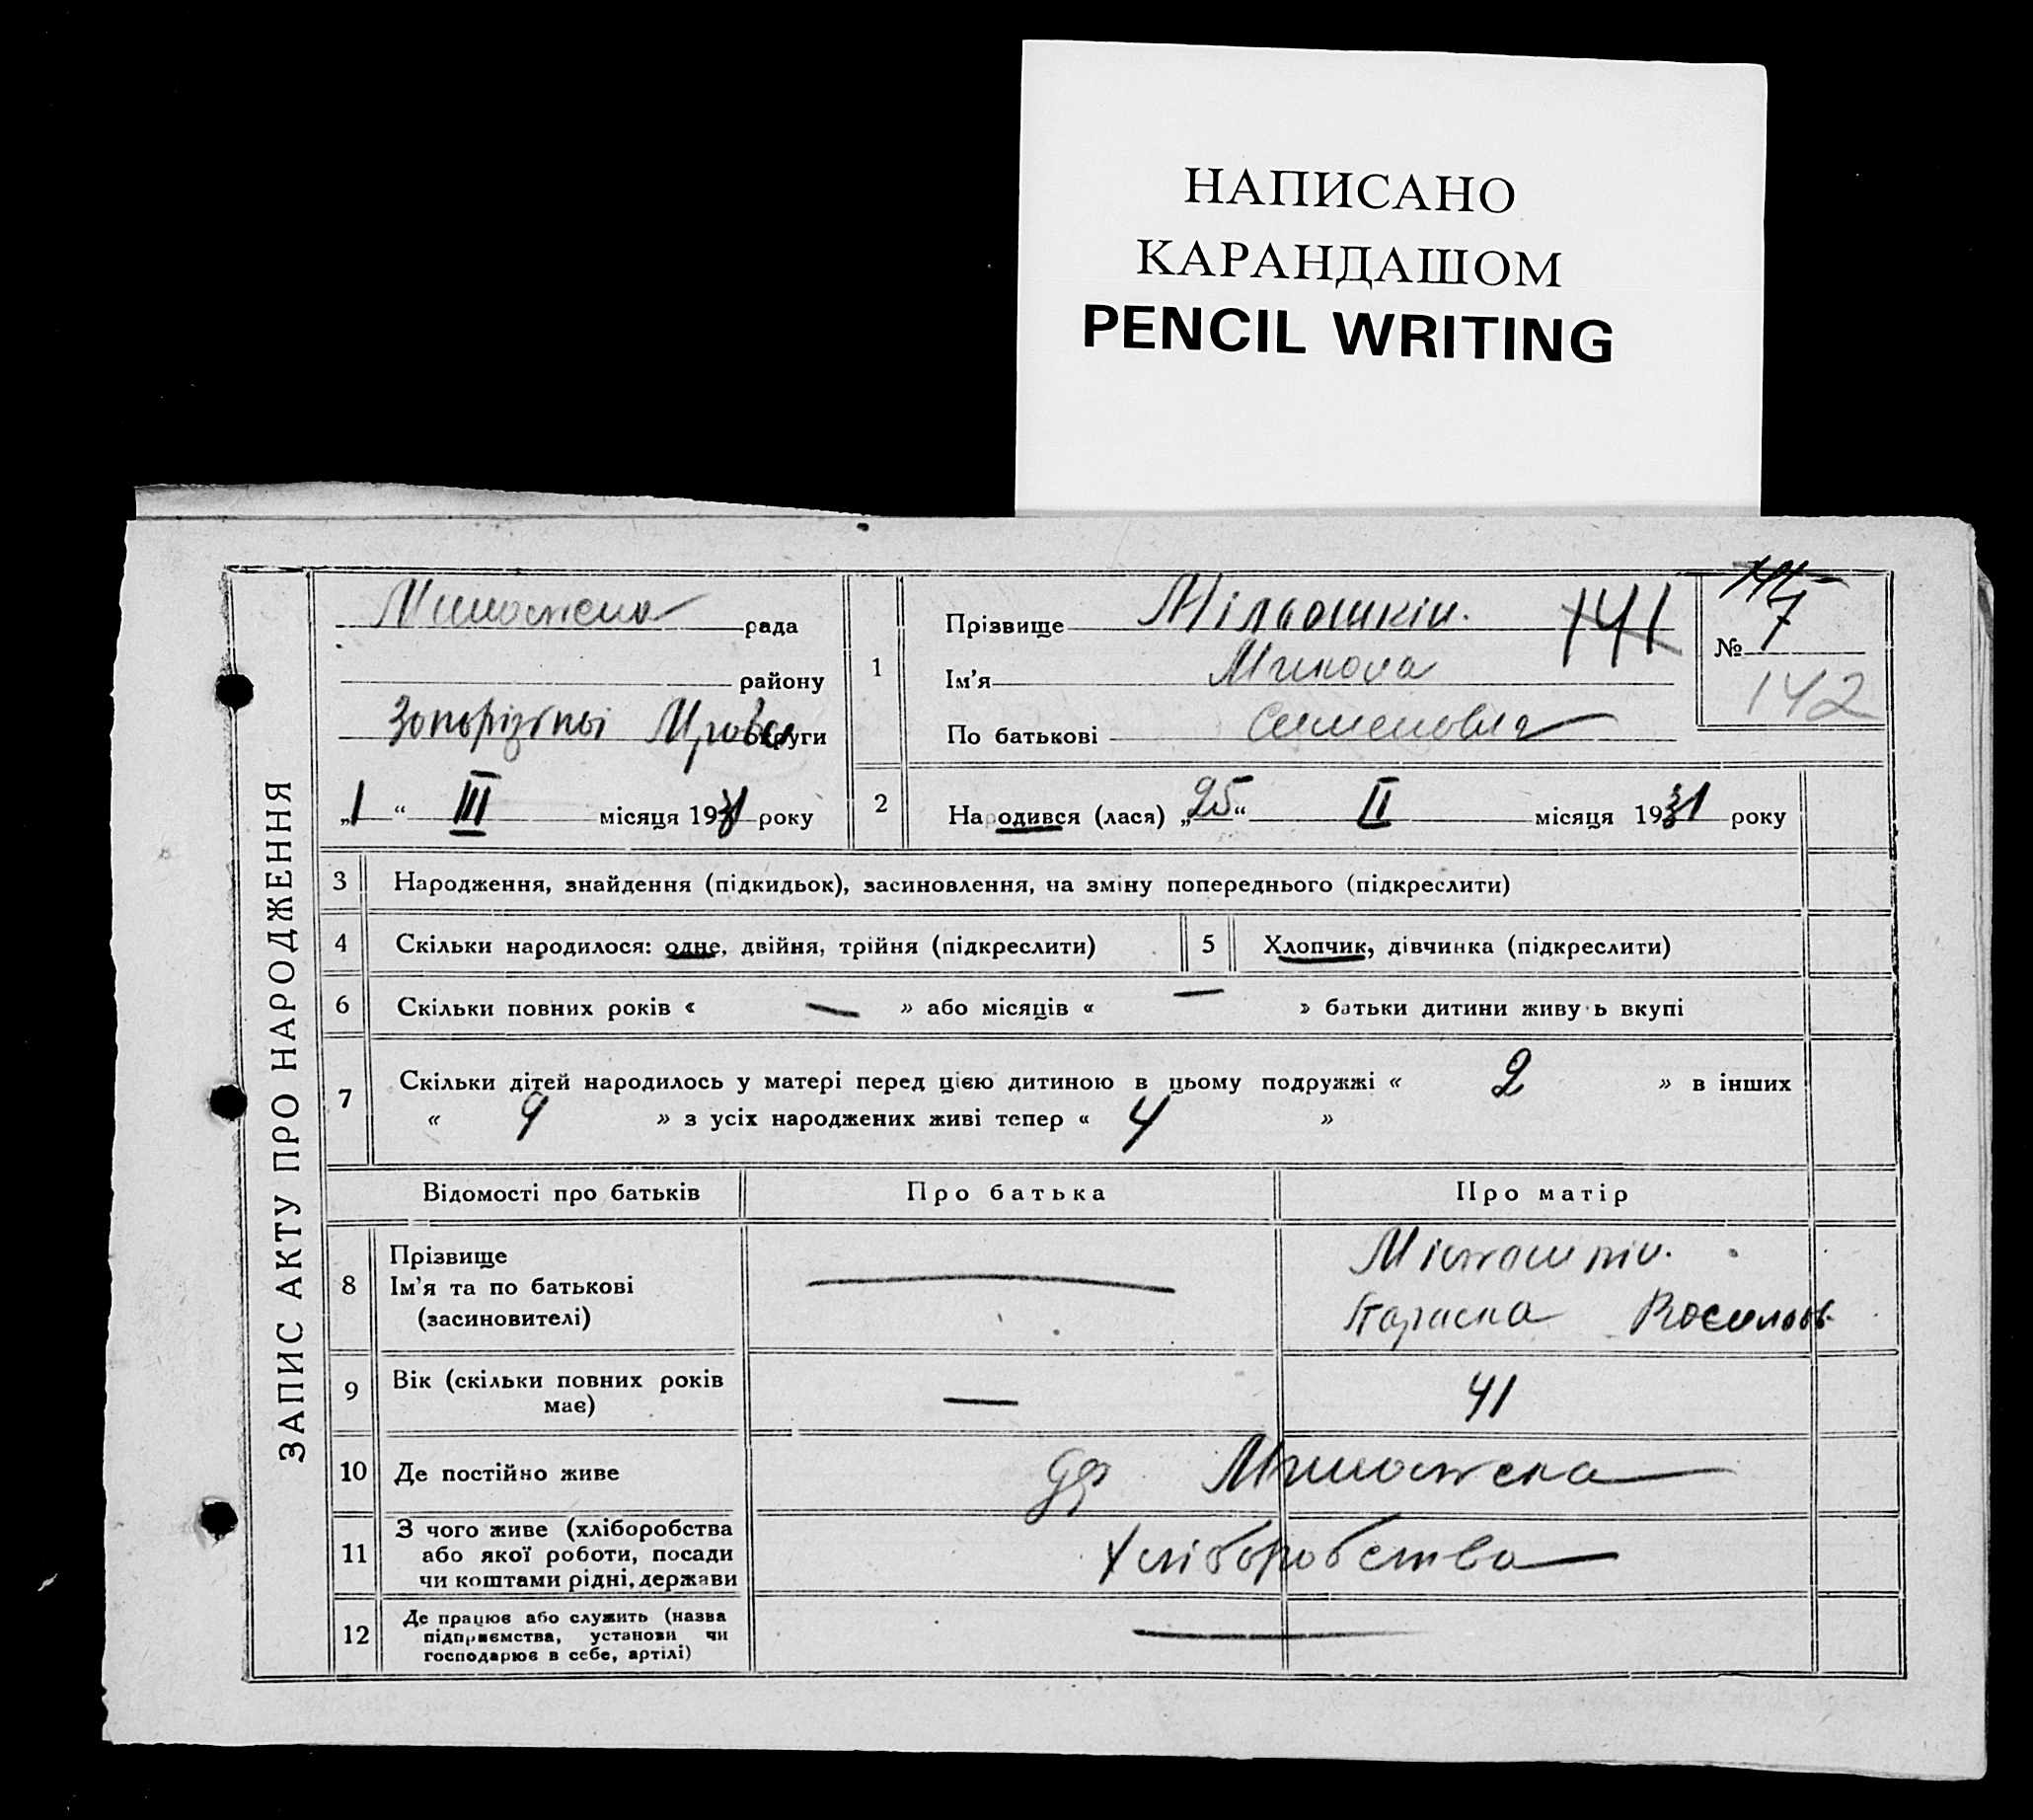 НАПИСАНО
КАРАНДАШОМ
PENCIL WRITING
ЗАПИС АКТУ ПРО НАРОДЖЕННЯ
рада
району
округи
„1“ III місяця 1931 року
1
Прізвище Мільошкін. 141
Ім'я Микола
По батькові Семенович
№ 7
142
2
Народився (лася) „25“ II місяця 1931 року
3 Народження, знайдення (підкидьок), засиновлення, на зміну попереднього (підкреслити)
4 Скільки народилося: одне, двійня, трійня (підкреслити) 5 Хлопчик, дівчинка (підкреслити)
6 Скільки повних років « — » або місяців « — » батьки дитини живу ь вкупі
7 Скільки дітей народилось у матері перед цією дитиною в цьому подружжі « 2 » в інших
« » з усіх народжених живі тепер « 4 »
Відомості про батьків Про батька Про матір
8 Прізвище
Ім'я та по батькові
(засиновителі)
—
Параска Василів.
9 Вік (скільки повних років
має)
— 41
10 Де постійно живе
11 З чого живе (хліборобства
або якої роботи, посади
чи коштами рідні, держави
Хліборобства
12 Де працює або служить (назва
підприємства, установи чи
господарює в себе, артілі)
—